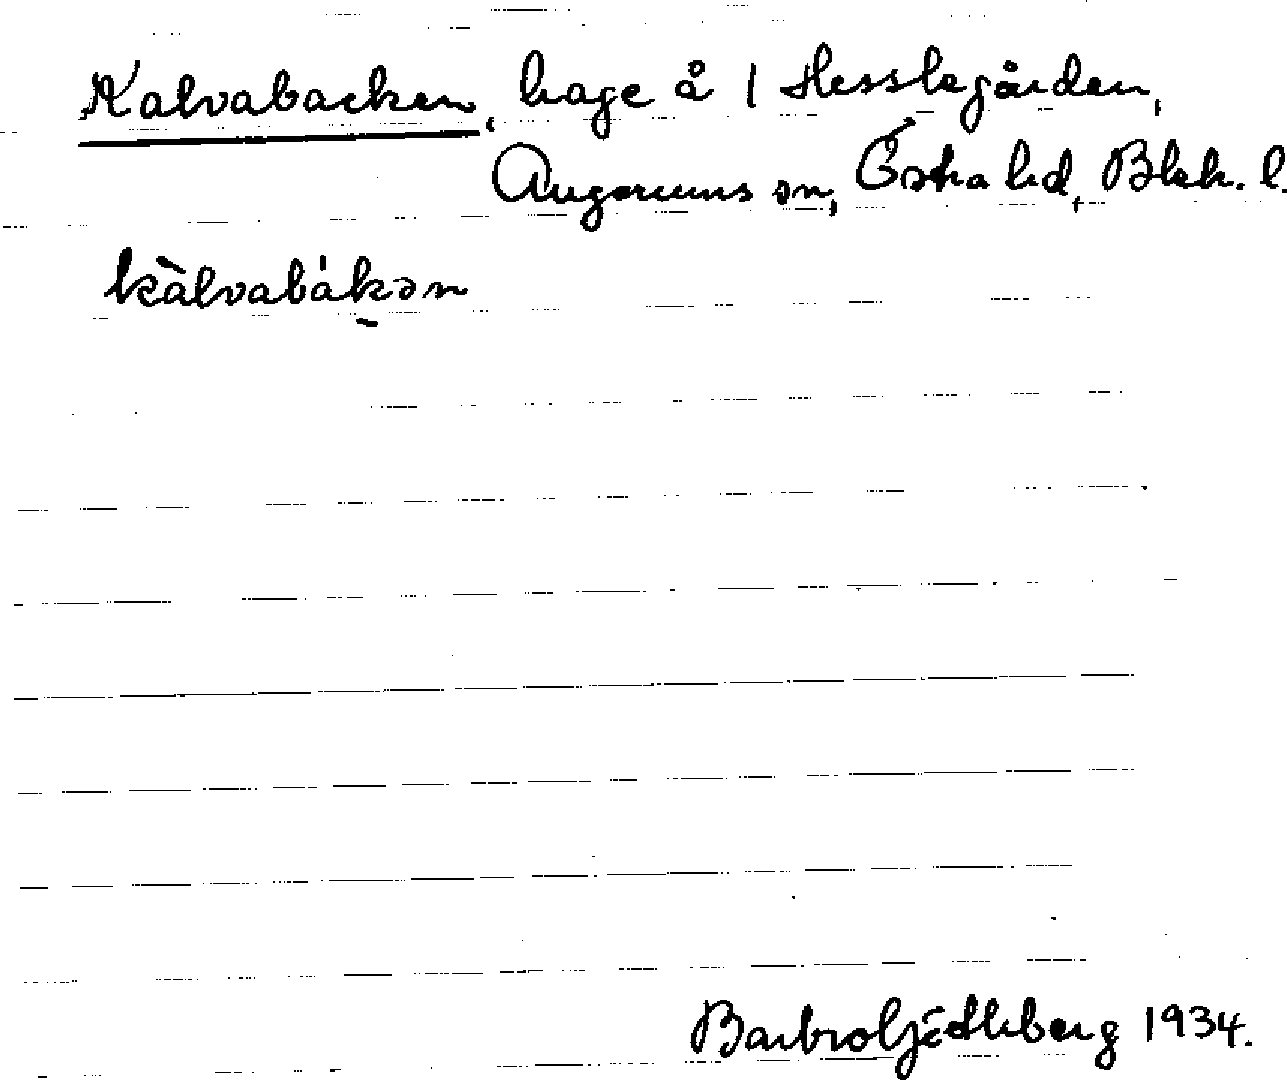 Kalvabacken, hage å 1 Hesslegården,
Augerums sn, Östra hd, Blek. l.
kàlvabákən
Barbro 1934.